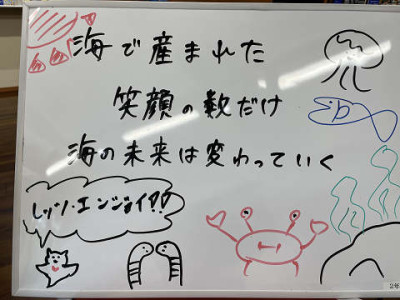 海で産まれた
笑顔の数だけ
海の未来は変わっていく
レッツ・エンジョイ!!